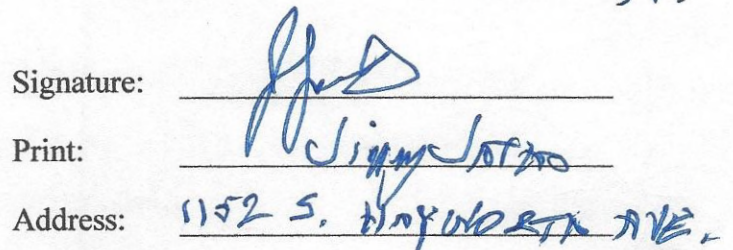 Signature:
Print: Jimmy
Address: 1152 S. HAYWORTH AVE.